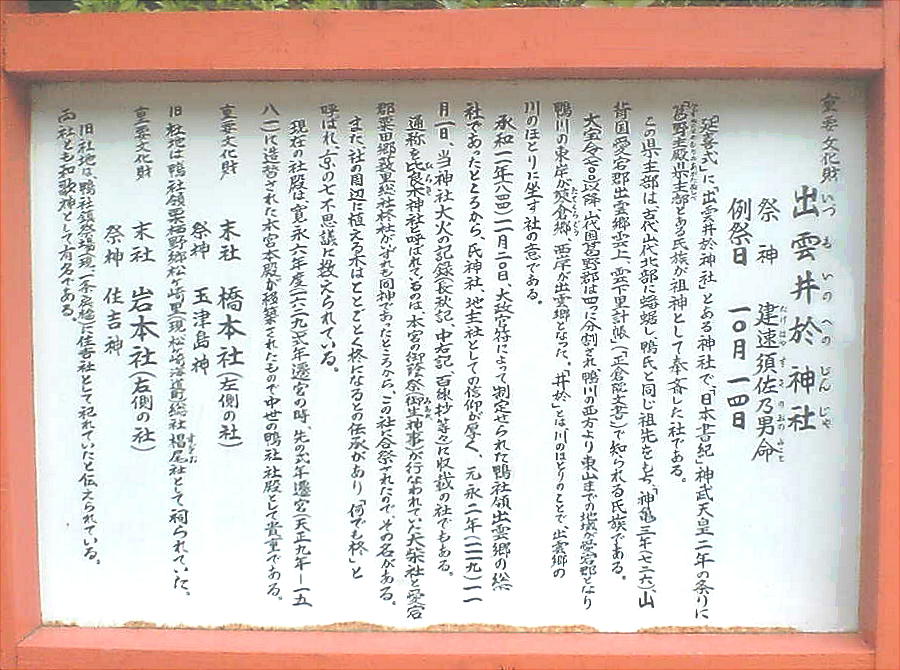 重要文化財
出雲井於神社
いつもいのへのじんじゃ
祭神 建速須佐乃男命
たけはやすさのおのみこと
例祭日 一〇月一四日
「延喜式」に「出雲井於神社」とある神社で、「日本書紀」神武天皇二年の条りに
「葛野主殿県主部」とある氏族が祖神として奉斎した社である。
この県主部は、古代山代北部に蟠踞し、鴨氏と同じ祖先をもち、「神亀三年(七二六)、山
背国愛宕郡出雲郷雲上、雲下里計帳」(「正倉院文書」)で知られる氏族である。
大宝令(七〇一)以降、山代国葛野郡は四つに分割され、鴨川の西方より東山までの地域が愛宕郡となり
鴨川の東岸が蓼倉郷、西岸が出雲郷となった。「井於」とは、川のほとりのことで、出雲郷の
川のほとりに坐す社の意である。
承和一一年(八四四)一一月二〇日、大政官符によって制定せられた鴨社領出雲郷の総
社であったところから、氏神社、地主社としての信仰が厚く、元永二年(一一一九)一一
月一日、当神社大火の記録は長秋記、中右記、百錬抄等々に収載の社でもある。
通称を比良木神社と呼ばれているのは、本宮の御蔭祭(御生神事)が行なわれていた犬柴社と愛宕
郡栗田郷藪里総社柊社がいずれも同神であったところから、この社に合祭されたので、その名がある。
また、社の周辺に植える木はことごとく柊になるとの伝承があり「何でも柊」と
呼ばれ、京の七不思議に数えられている。
現在の社殿は、寛永六年度(一六二九)式年遷宮の時、先の式年遷宮(天正九年—一五
八一)に造替された本宮本殿が移築されたもので中世の鴨社社殿として貴重である。
重要文化財 末社 橋本社(左側の社)
祭神 玉津島神
旧社地は、鴨社領栗栖野郷松ヶ崎里(現、松ヶ崎海道町)総社 椙尾社として祠られていた。
重要文化財 末社 岩本社(右側の社)
祭神 住吉神
旧社地は、鴨社鎮祭場(現、一条戻橋)に住吉社として祀れていたと伝えられている。
両社とも和歌神として有名である。